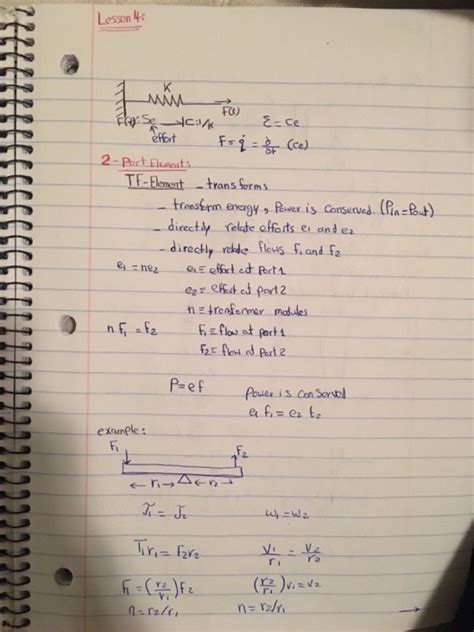 Lesson 4:
K
F(t)
F(t): Se C:1/K ε = ce
effort F = q̇ = ∂/∂t (Ce)
2-Port Elements
TF-Element - transforms
- transform energy, Power is Conserved (Pin = Pout)
- directly relate efforts e1 and e2
- directly relate flows f1 and f2
e1 = ne2 e1 = effort at Port 1
e2 = effort at Port 2
n = transformer modules
n F1 = F2 F1 = flow at port 1
F2 = flow at port 2
P = ef Power is Conserved
e1 f1 = e2 f2
example:
F1 F2
← r1 → ← r2 →
T1 = T2 ω1 = ω2
F1 r1 = F2 r2 V1/r1 = V2/r2
F1 = (r2/r1) F2 (r2/r1) V1 = V2
n = r2/r1 n = r2/r1 →